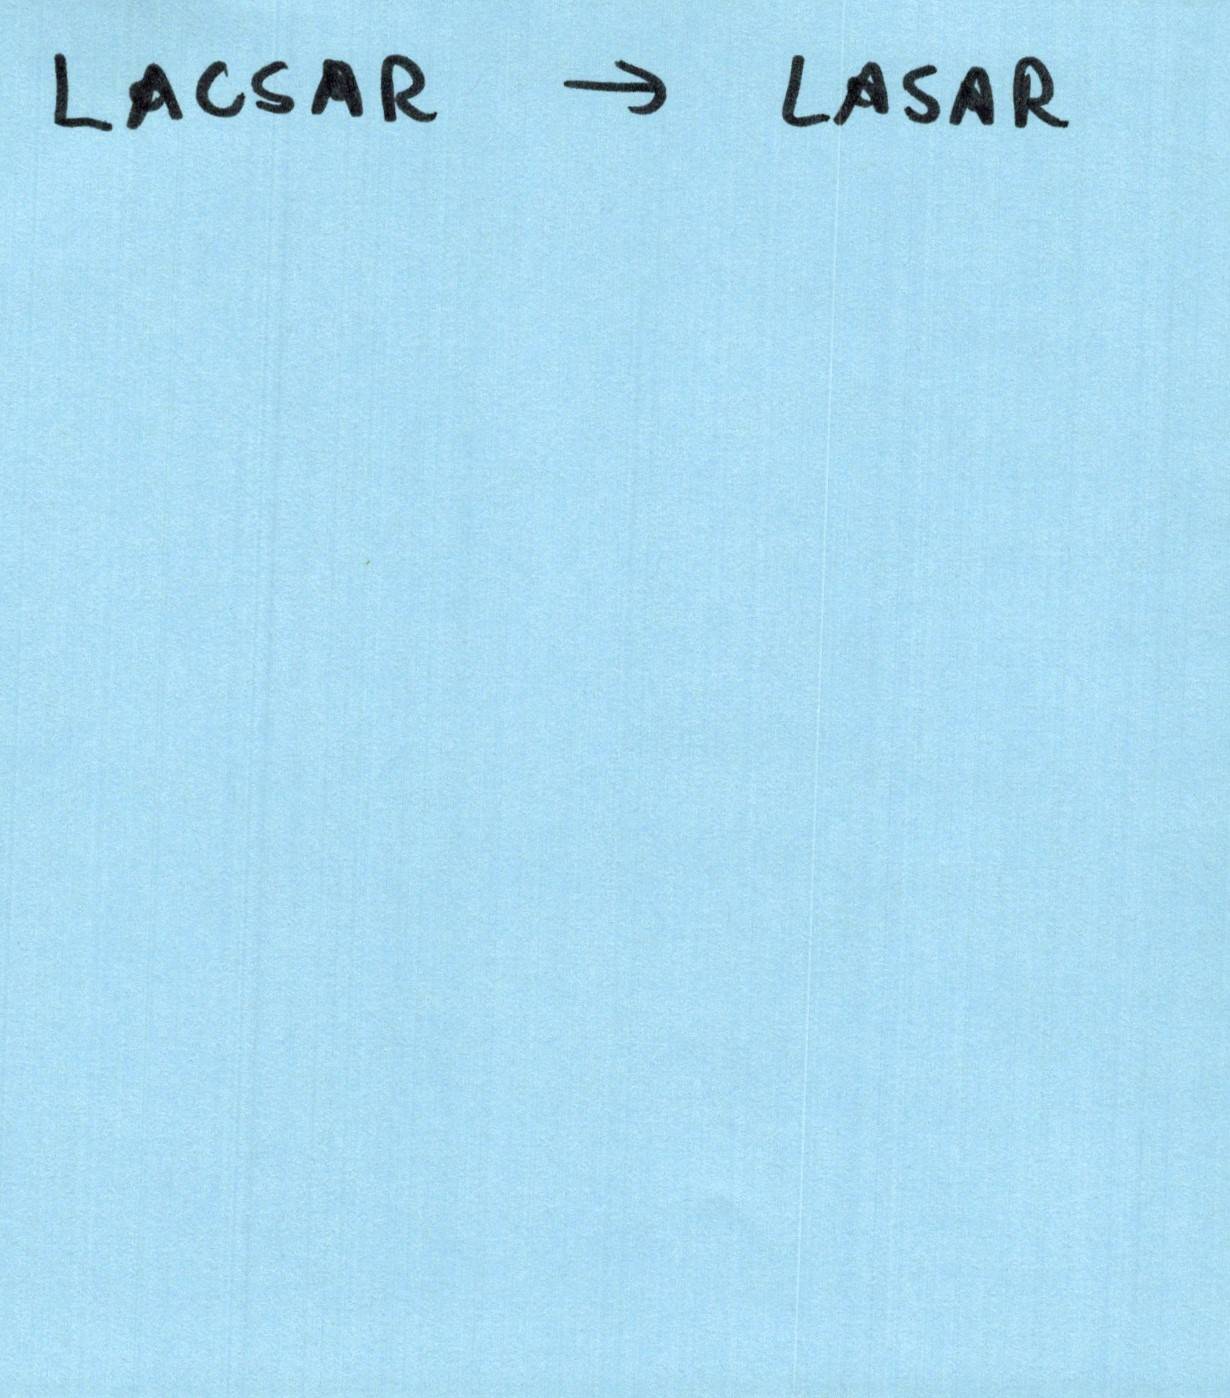 LACSAR → LASAR